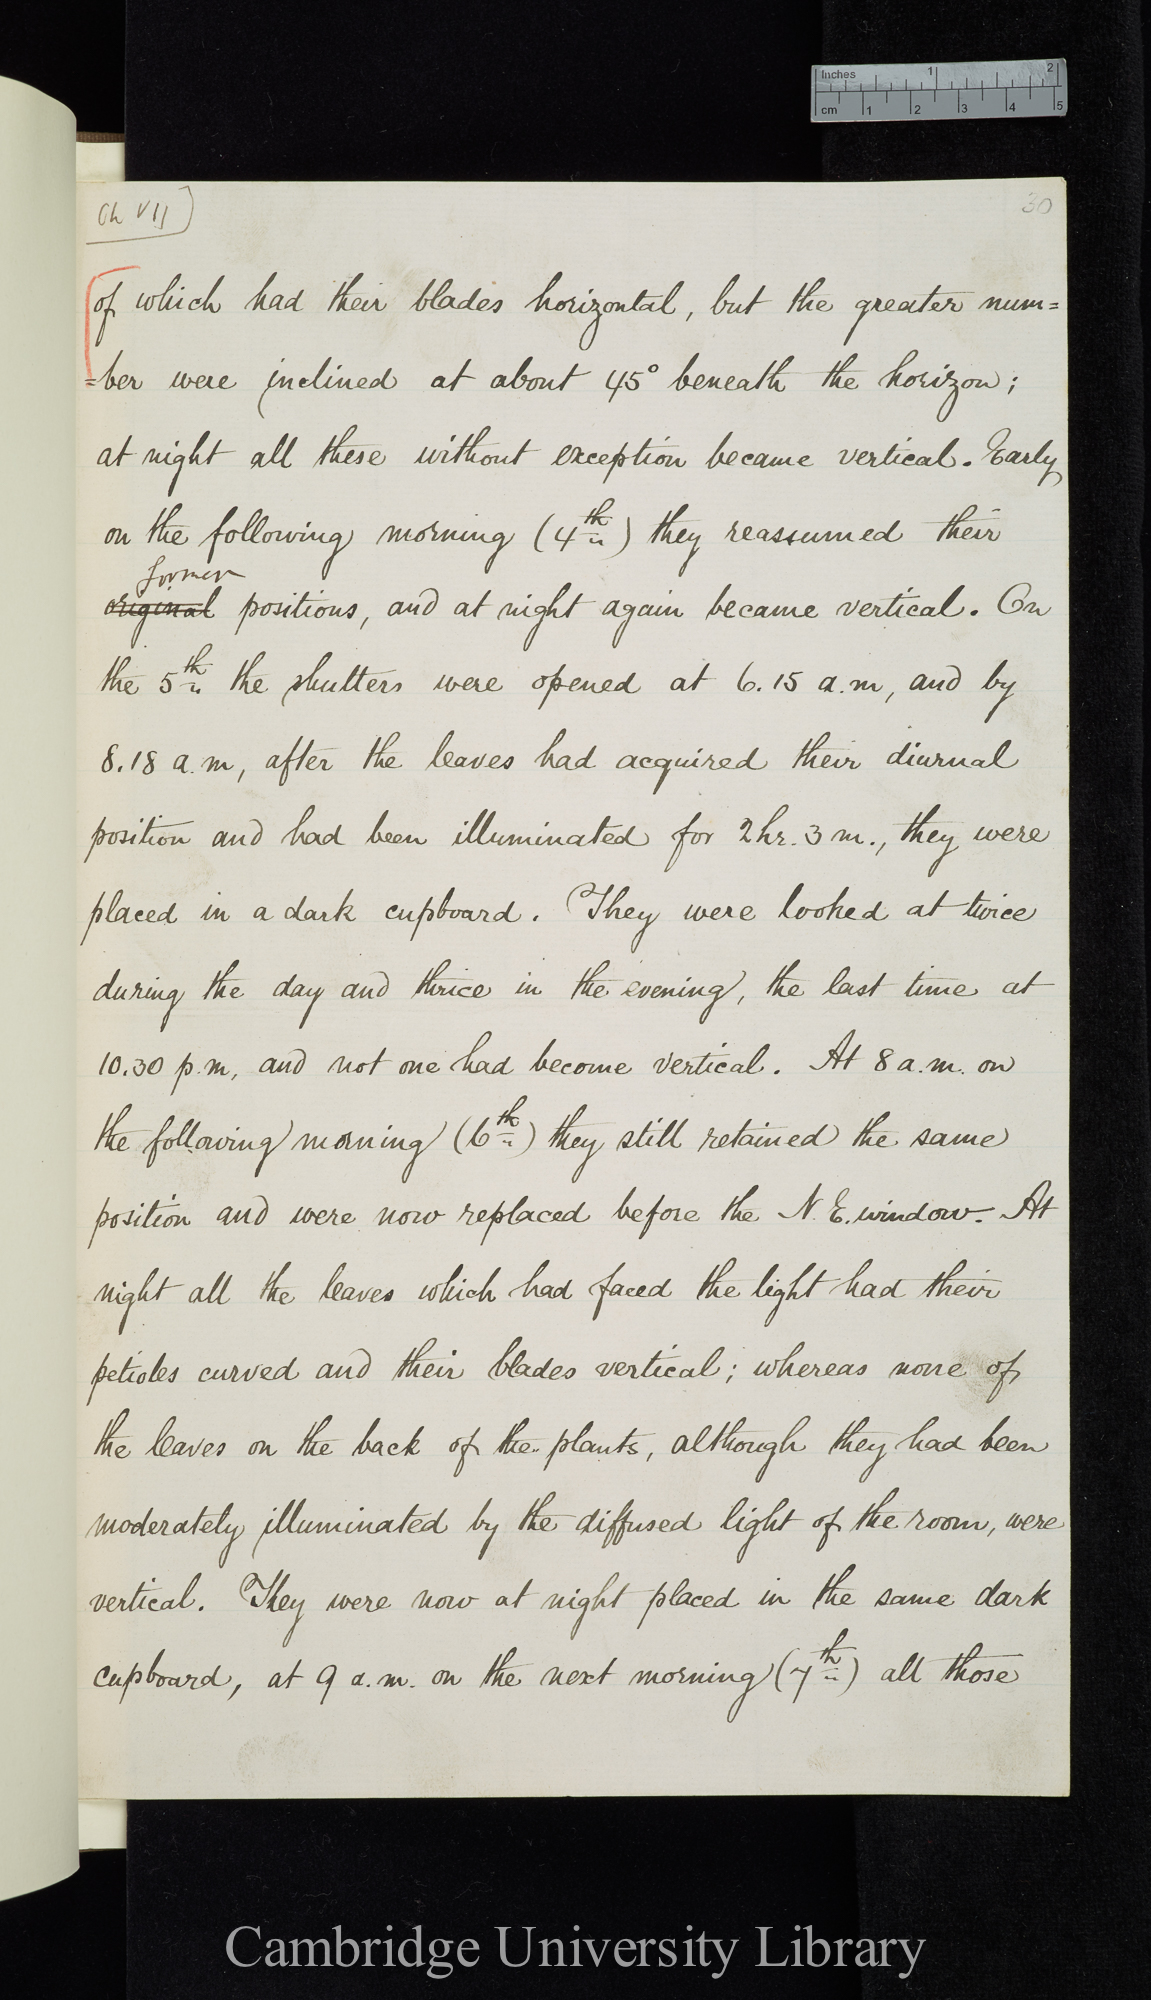 Inches 1 2
cm 1 2 3 4 5
Ch VII]
30
of which had their blades horizontal, but the greater num=
=ber were inclined at about 45° beneath the horizon;
at night all these without exception became vertical. Early
on the following morning (4th) they reassumed their
former
original positions, and at night again became vertical. On
the 5th the shutters were opened at 6.15 a.m, and by
8.18 a.m, after the leaves had acquired their diurnal
position and had been illuminated for 2hr. 3 m., they were
placed in a dark cupboard. They were looked at twice
during the day and thrice in the evening, the last time at
10.30 p.m, and not one had become vertical. At 8 a.m. on
the following morning (6th) they still retained the same
position and were now replaced before the N.E. window. At
night all the leaves which had faced the light had their
petioles curved and their blades vertical; whereas none of
the leaves on the back of the plants, although they had been
moderately illuminated by the diffused light of the room, were
vertical. They were now at night placed in the same dark
cupboard, at 9 a.m. on the next morning (7th) all those
Cambridge University Library